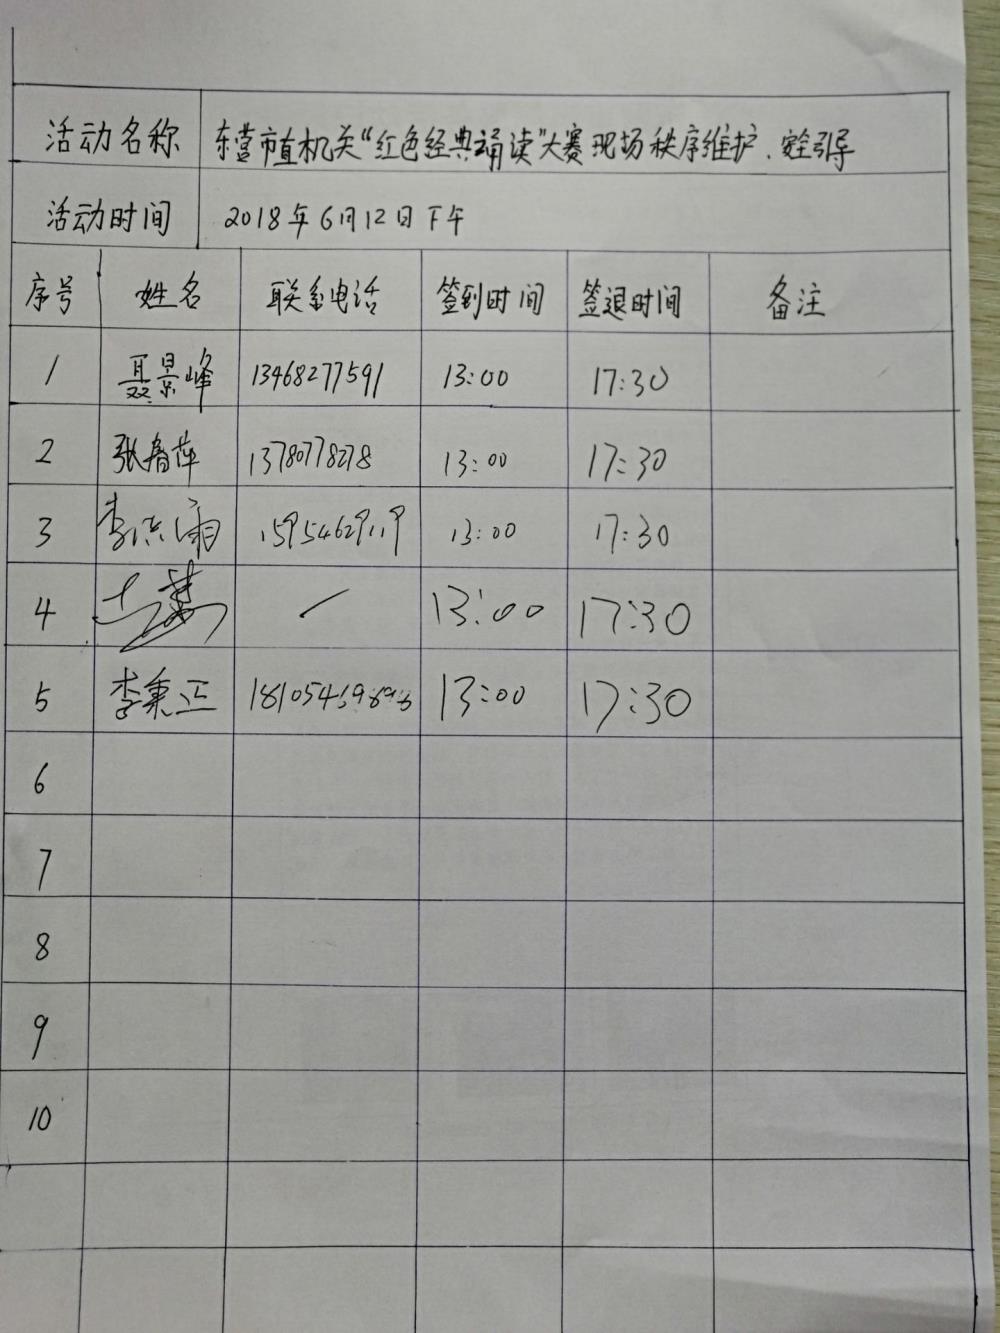 活动名称 东营市直机关“红色经典诵读”大赛现场秩序维护、安全引导
活动时间 2018年6月12日下午
序号 姓名 联系电话 签到时间 签退时间 备注
1 聂景峰 13468277591 13:00 17:30
2 张春萍 13780778278 13:00 17:30
3 李 雨 15954629119 13:00 17:30
4 — 13:00 17:30
5 李秉正 13:00 17:30
6
7
8
9
10